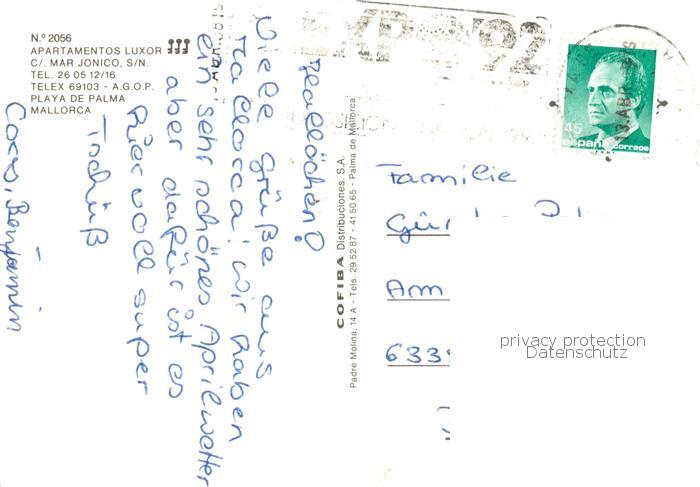 N.º 2056
APARTAMENTOS LUXOR
C/. MAR JONICO, S/N.
TEL. 26 05 12/16
TELEX 69103 - A.G.O.P.
PLAYA DE PALMA
MALLORCA
Hallöchen!
Viele Grüße aus
Mallorca! Wir haben
ein sehr schönes Aprilwetter
aber dafür ist es
hier voll super
Tschüß
Benjamin
COFIBA Distribuciones, S.A.
Padre Molina, 14 A - Tels. 29 52 87 - 41 50 65 - Palma de Mallorca
EXPO '92
45
españa correos
Familie
Am
633
privacy protection
Datenschutz